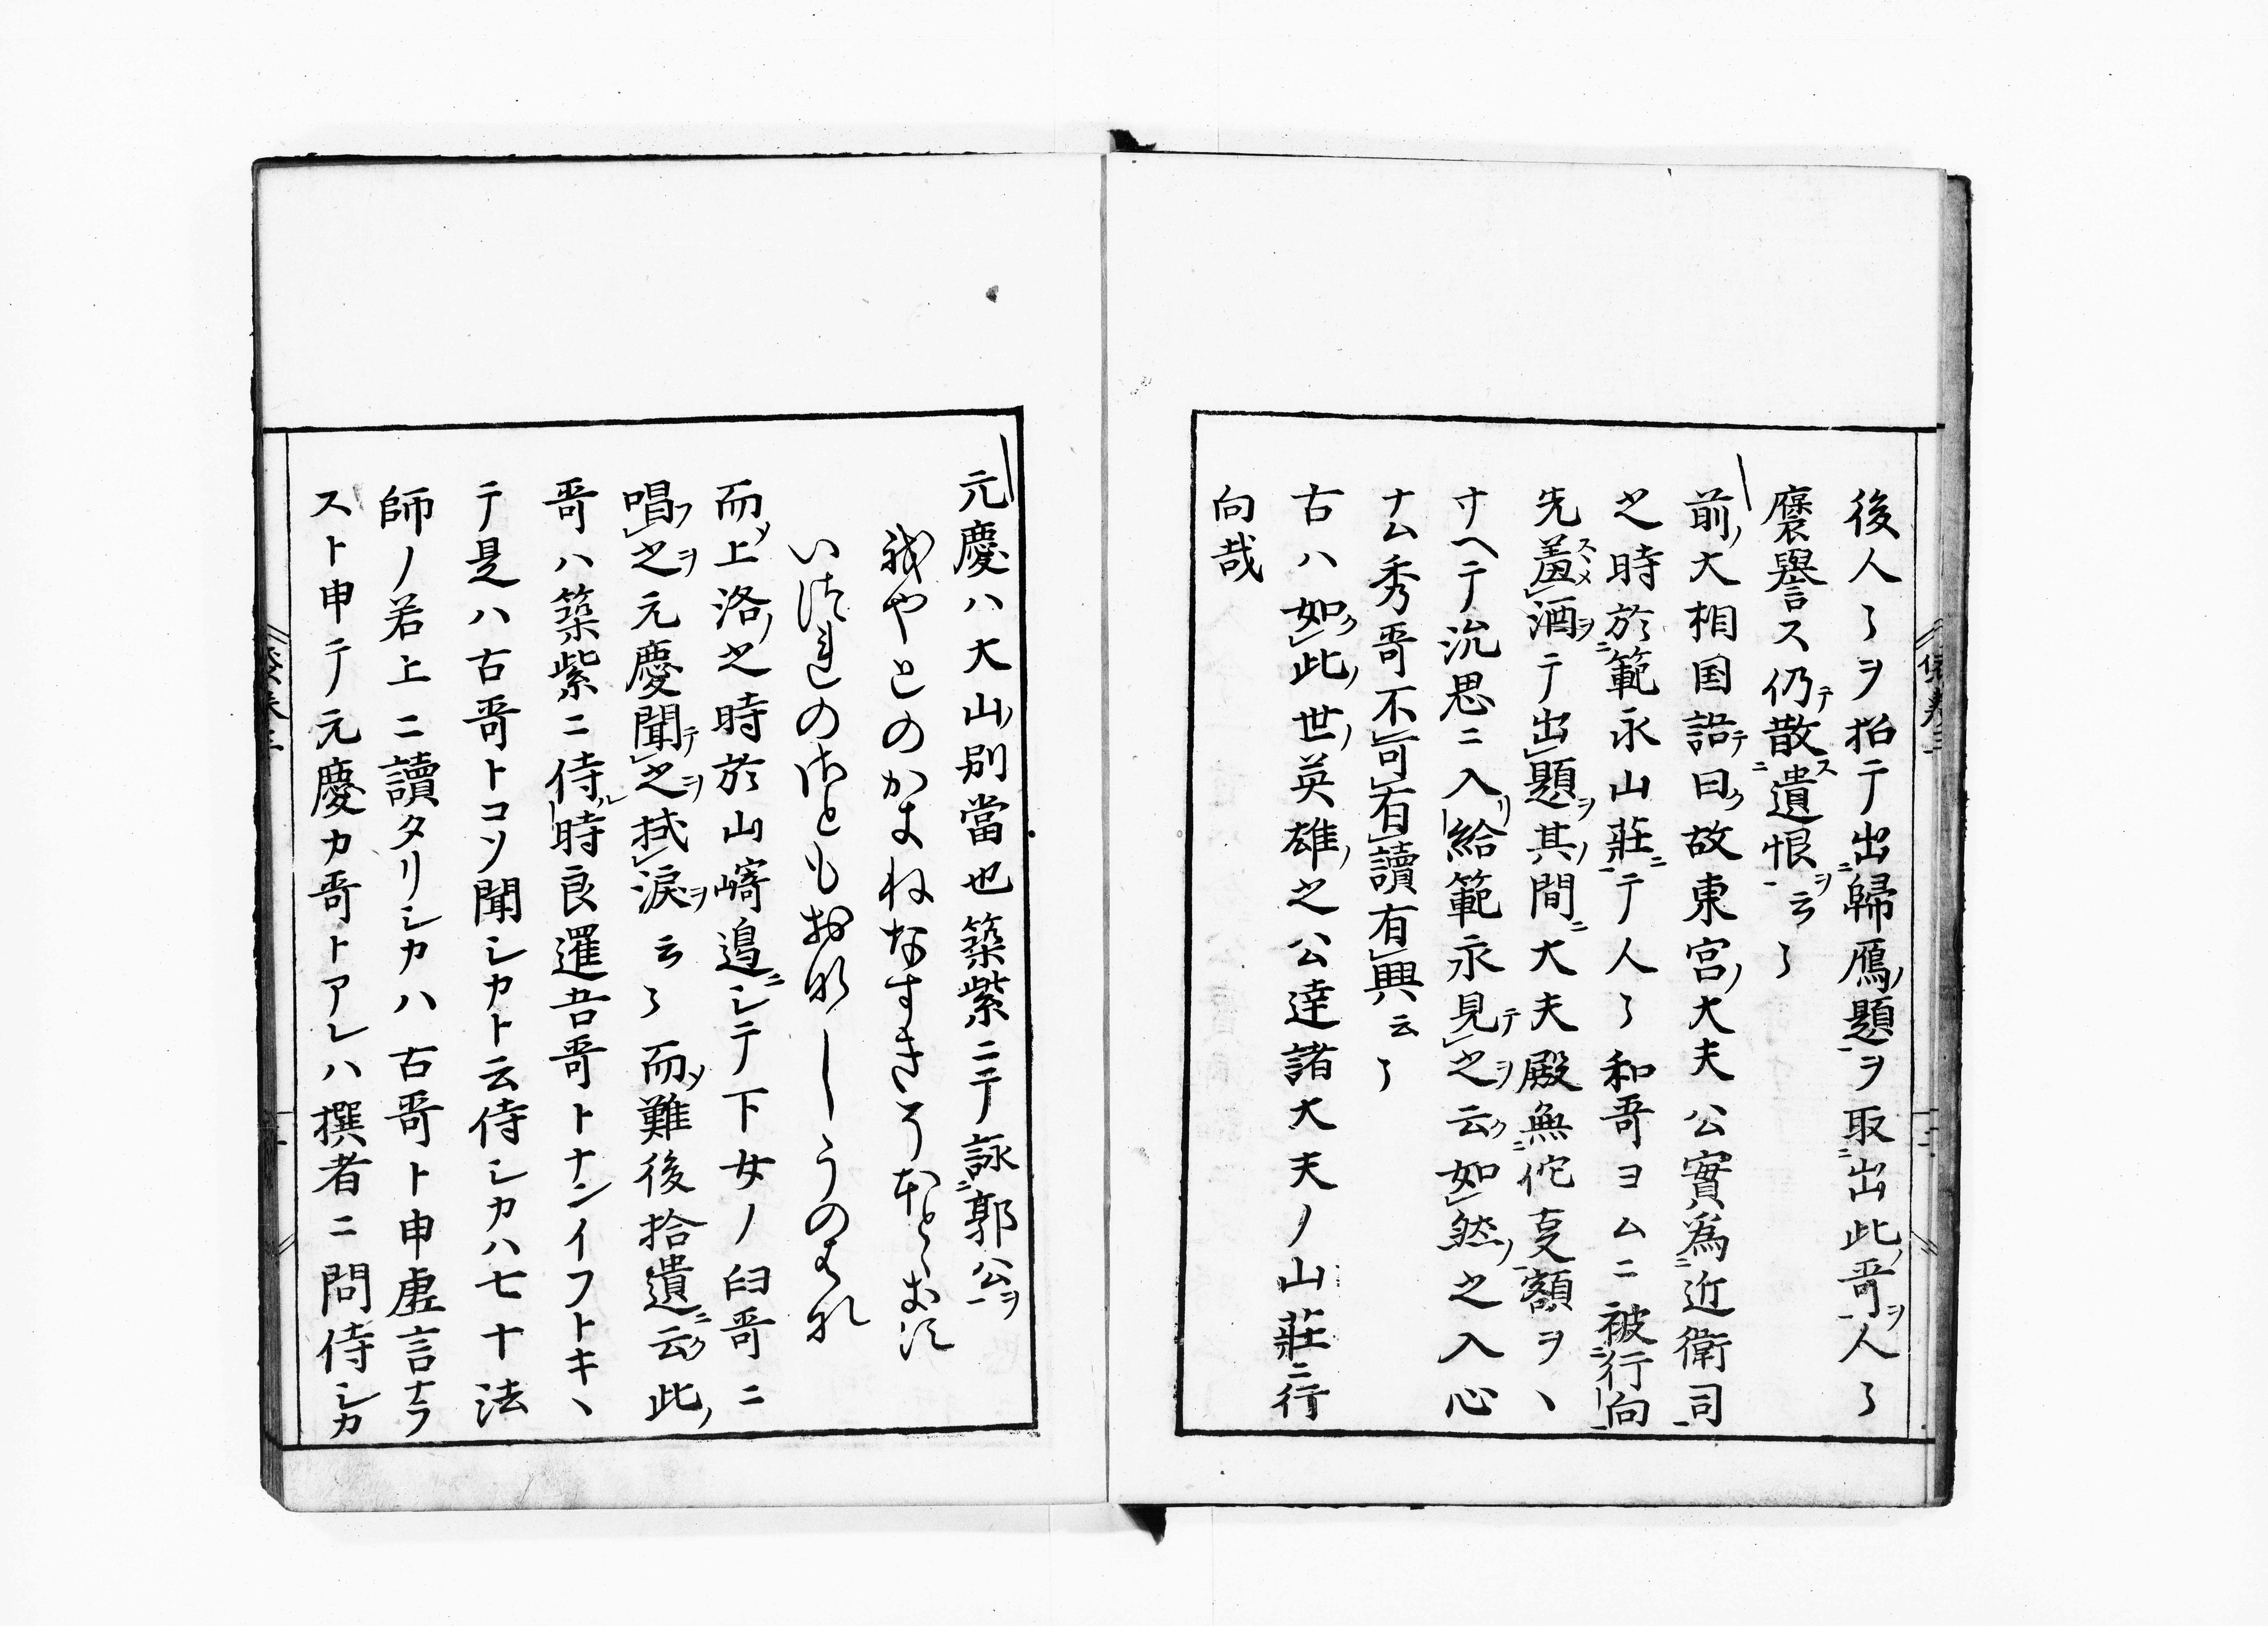 後人々ヲ招テ出帰雁ノ題ヲ取出此ノ哥ヲ人々
褒譽ス仍テ散ス遺恨ヲ云々
前ノ大相国語テ曰ク故東宮ノ大夫公實為近衛司
之時於範永山荘ニテ人々和哥ヨムニ被行向
先羞スヽメ酒ヲテ出題ヲ其ノ間ニ大夫殿無佗㕝額ヲヽ
サヘテ沈思ニ入リ給範永見テ之ヲ云ク如然ノ之入心
ナム秀哥不可有讀有興云々
古ハ如ク此ノ世ノ英雄ノ之公達諸大夫ノ山荘ニ行
向哉
元慶ハ大山ノ別當也築紫ニテ詠郭公ヲ
我やとのかきねなすきそほとゝきす
いつれの
おなしうのはな
而メ上洛ノ之時於山﨑邉ニシテ下女ノ臼哥ニ
唱フ之ヲ元慶聞テ之ヲ拭涙ヲ云々而ソ難後拾遺ニ云ク此ノ
哥ハ築紫ニ侍ル時良暹吾哥トナンイフトキヽ
テ是ハ古哥トコソ聞シカト云侍シカハ七十法
師ノ若上ニ讀タリシカハ古哥ト申虚言ナラ
スト申テ元慶カ哥トアレハ撰者ニ問侍シカ